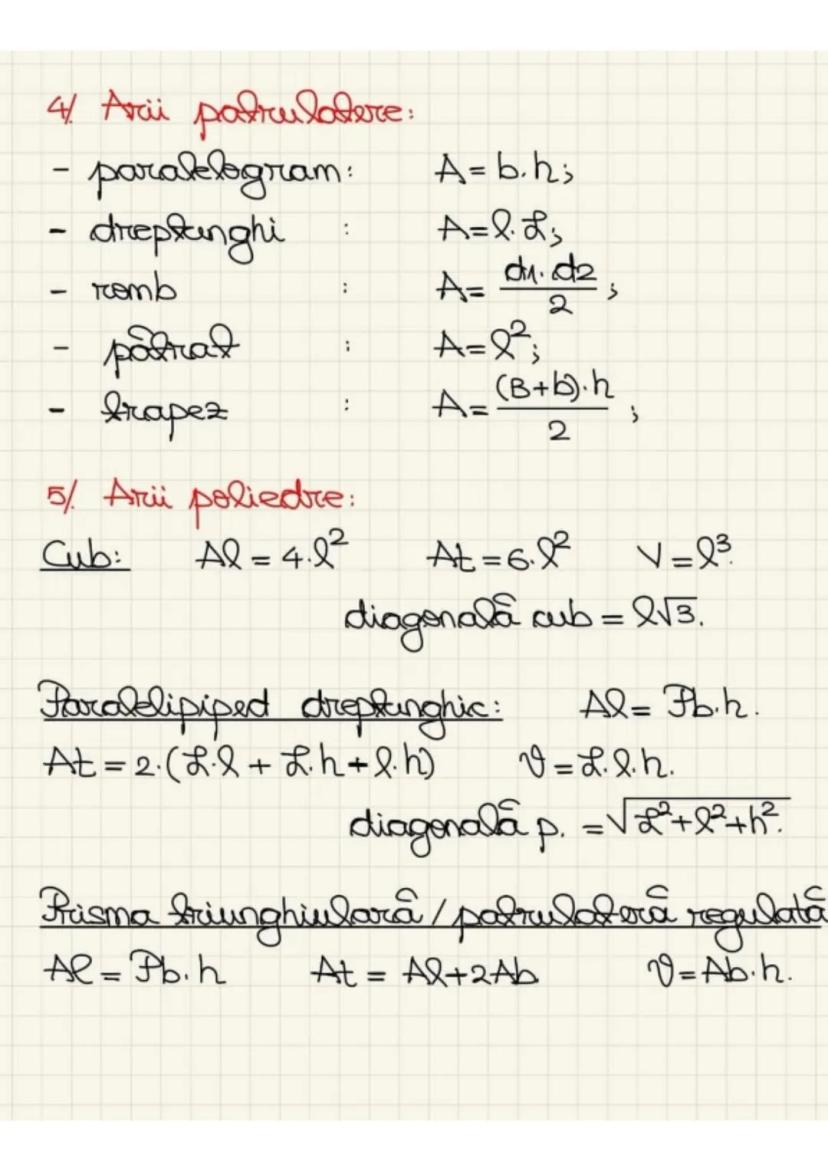 4/ Arii patrulatere:
- paralelogram: A = b.h;
- dreptunghi : A = l.L;
- romb : A = d1.d2/2 ;
- pătrat : A = l²;
- trapez : A = (B+b).h/2 ;
5/ Arii poliedre:
Cub: Al = 4.l² At = 6.l² V = l³.
diagonală cub = l√3.
Paralelipiped dreptunghic: Al = Pb.h.
At = 2.(L.l + L.h + l.h) V = L.l.h.
diagonală p. = √L²+l²+h².
Prisma triunghiulară / patrulateră regulată
Al = Pb.h At = Al+2Ab V = Ab.h.